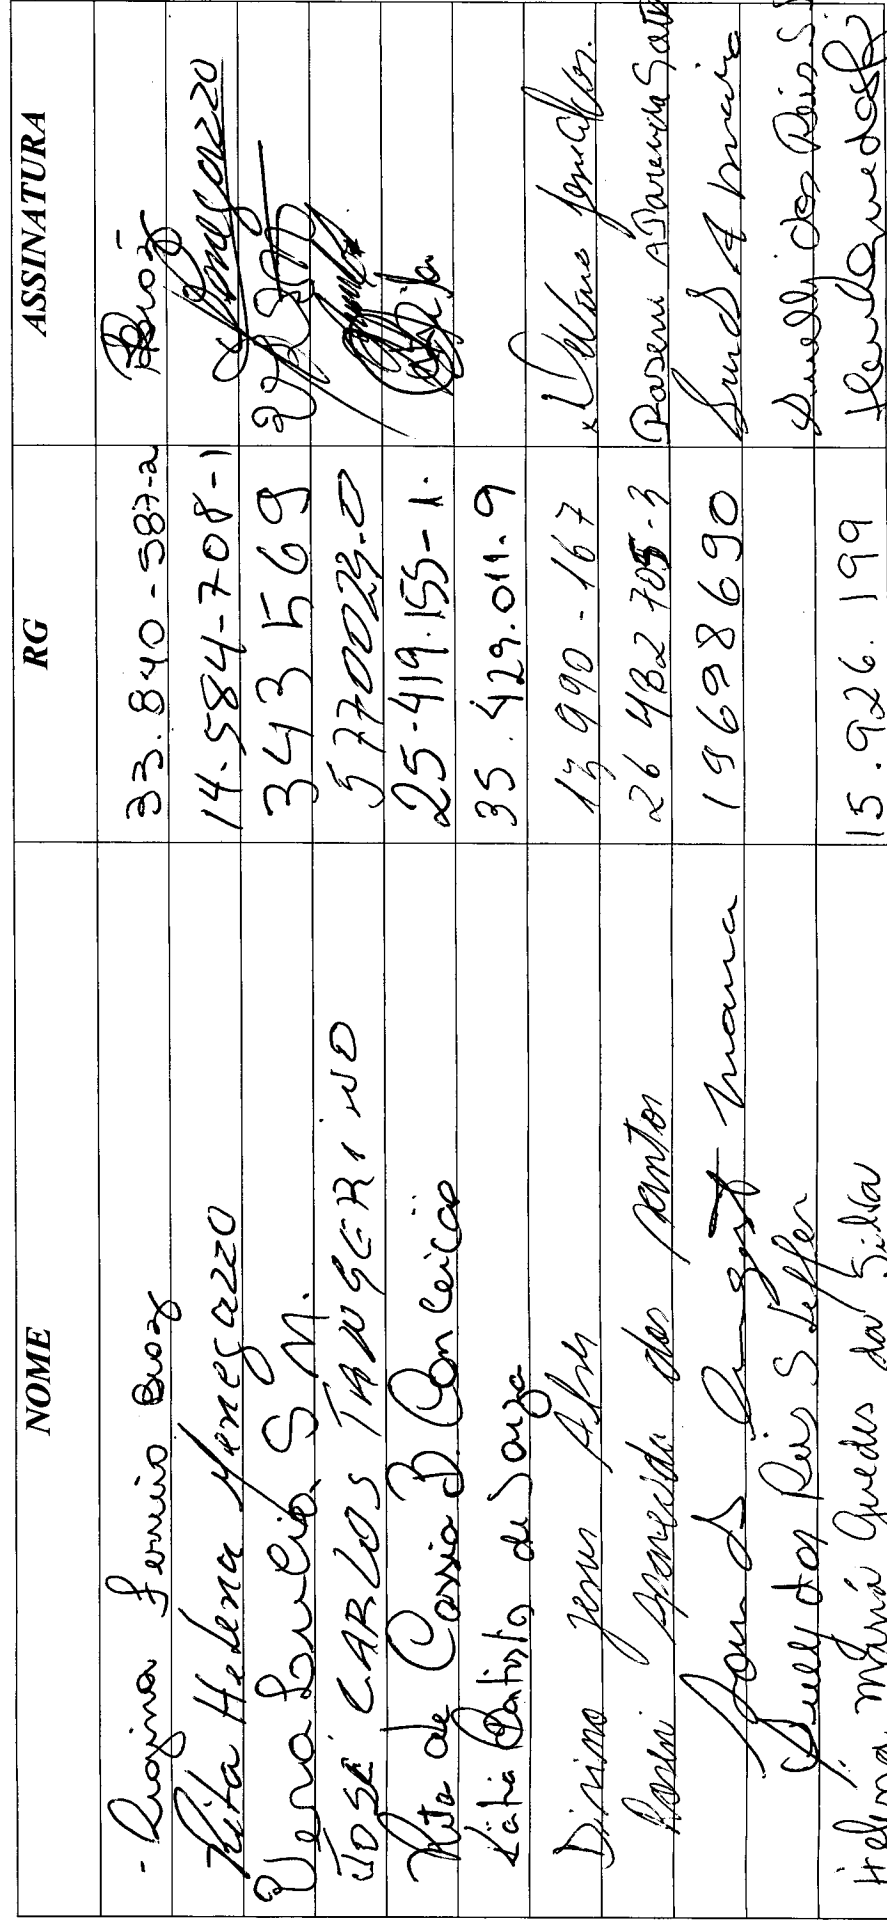 NOME RG ASSINATURA
- Regina Broz 33.840-587-2 Broz
Rita Helena Menegazzo 14-584-708-1 Menegazzo
Vera Lucia S M. 343569
JOSÉ CARLOS TANGERINO 5770029-0
Rita de Cassia B. Conceicao 25-419.155-1.
Katia Batista de Souza 35.429.011-9
Divino Jesus Alves 13 990-167
Roseni Aparecida dos santos 26 482 705-3 Roseni Aparecida
19698690
Suely dos Reis Steffen Suelly dos Reis S
Helena Maria Guedes da Silva 15.926.199